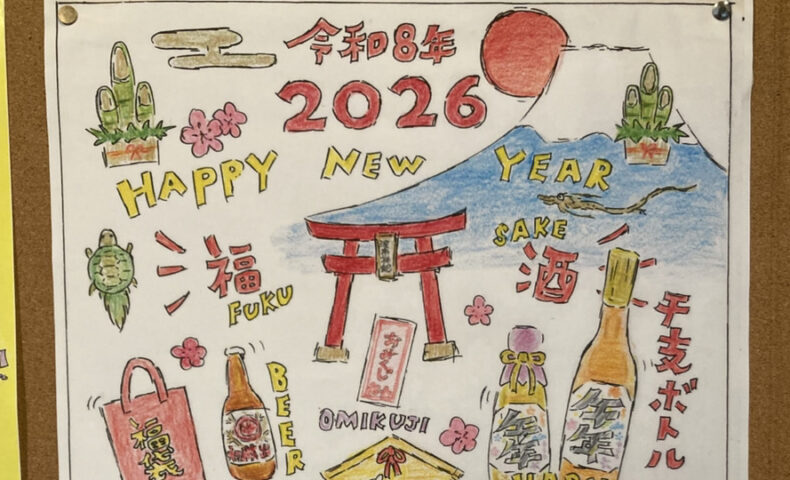 令和8年
2026
HAPPY NEW YEAR
SAKE
福
FUKU
酒
干支ボトル
おみくじ
OMIKUJI
BEER
福袋
午年
午年